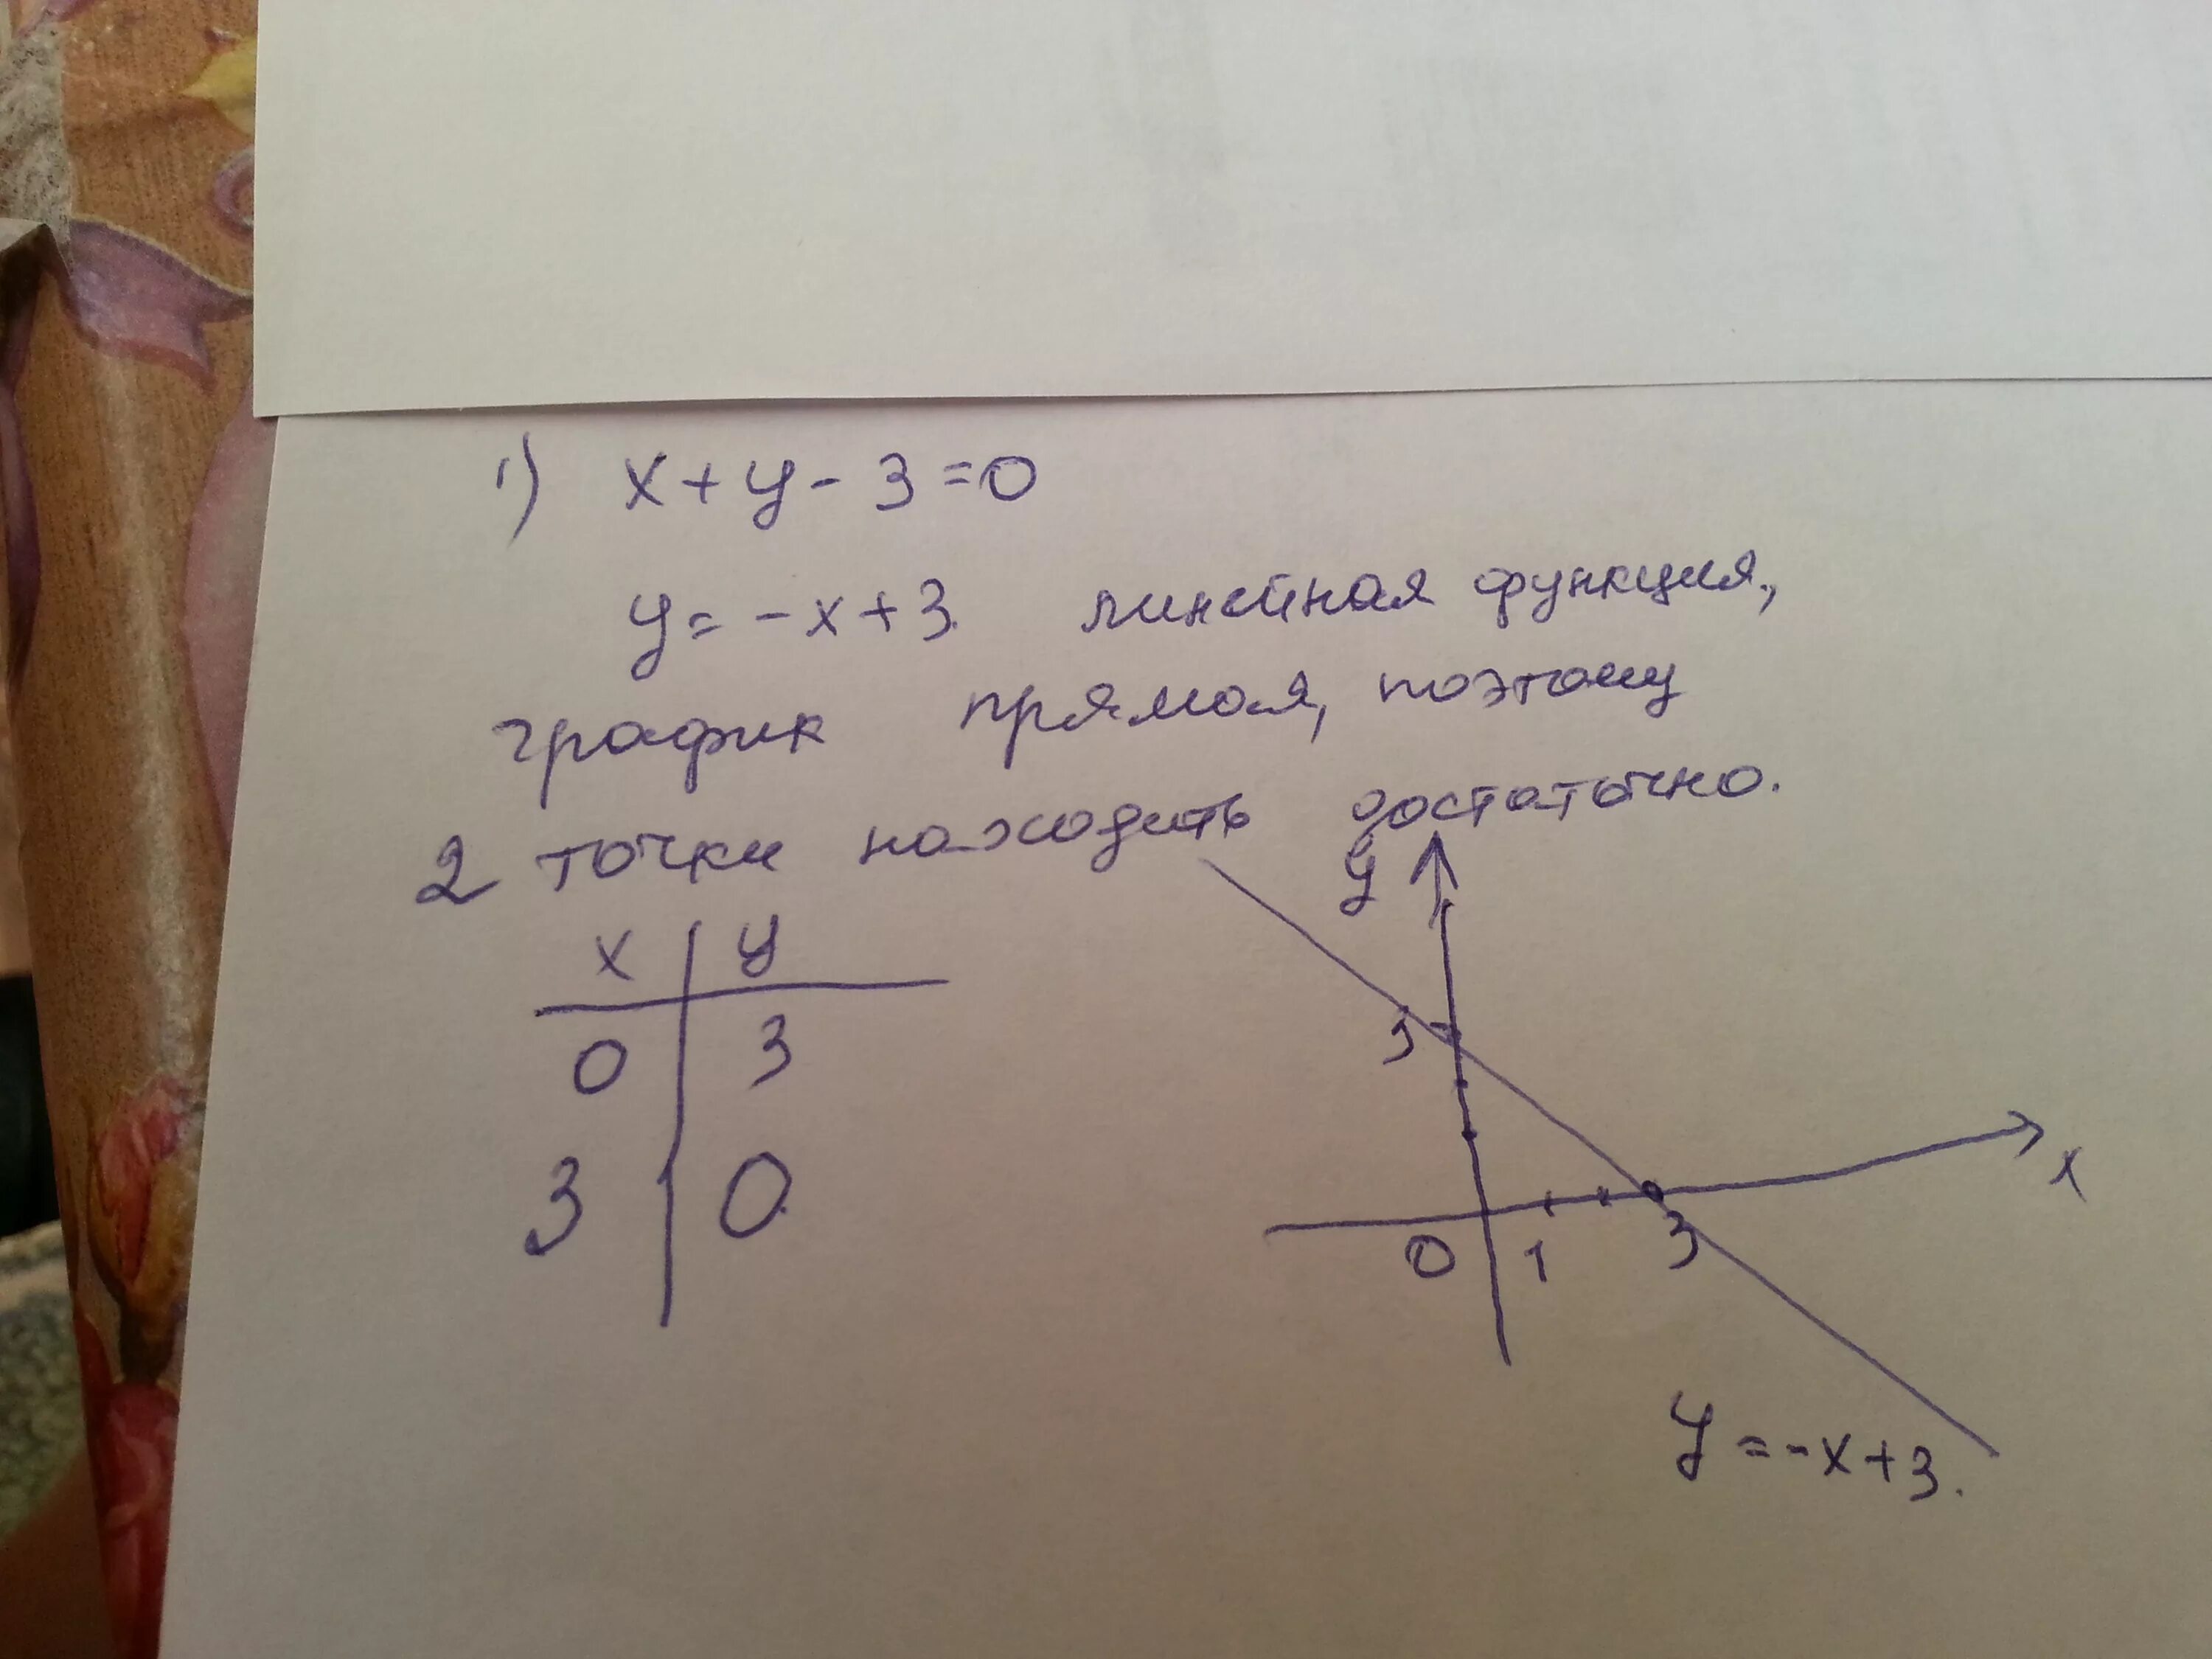 1) x + y - 3 = 0
y = -x + 3. линейная функция,
график прямая, поэтому
2 точки находить достаточно.
x y
0 3
3 0.
y
3
x
0 1 3
y = -x + 3.